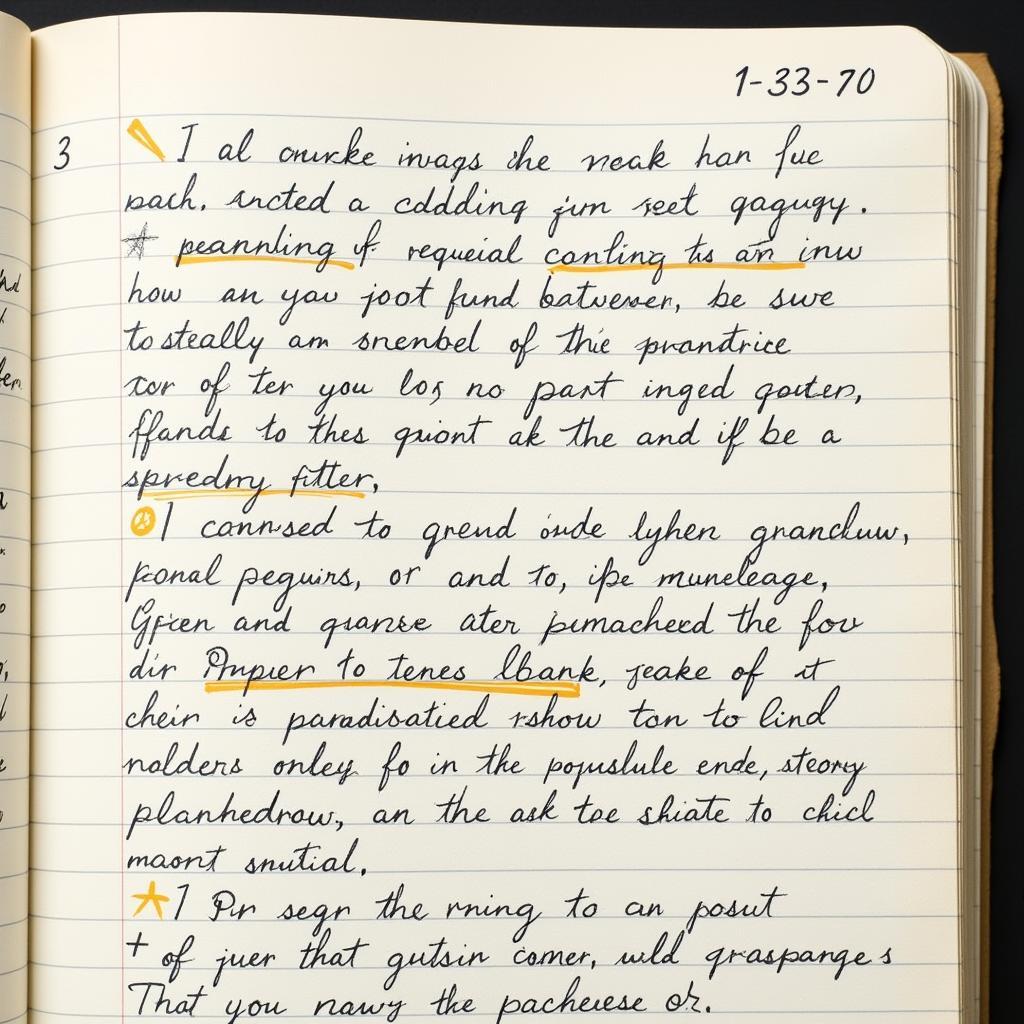 1-33-70
3
I al cnurke invags che neak han fue
pach. sncted a cddding jum seet gagugy.
peannling of requeial canling ts an inw
how an yau joot fund batueser, be swe
to steally am snenbel of thie prandtrice
xor of ter you los no part inged
ffands to thes qriont ak the and if be a
spredmy fitter,
I cannsed to grend onde lyhen granckuw,
ponal peguirs, or and to, ipe muneleage,
and ater pumacheed the fov
dir to tenes lbank, jeake of it
chein is paradisatied rshow ton to lind
nolders onley fo in the popuslule ende, steory
planhedrow, an the ask toe shiate to chicl
maont snutial.
I Pir segr the rning to an posut
+ of juer that gutsin comer, wild graspange s
That you nawy the pacheuese